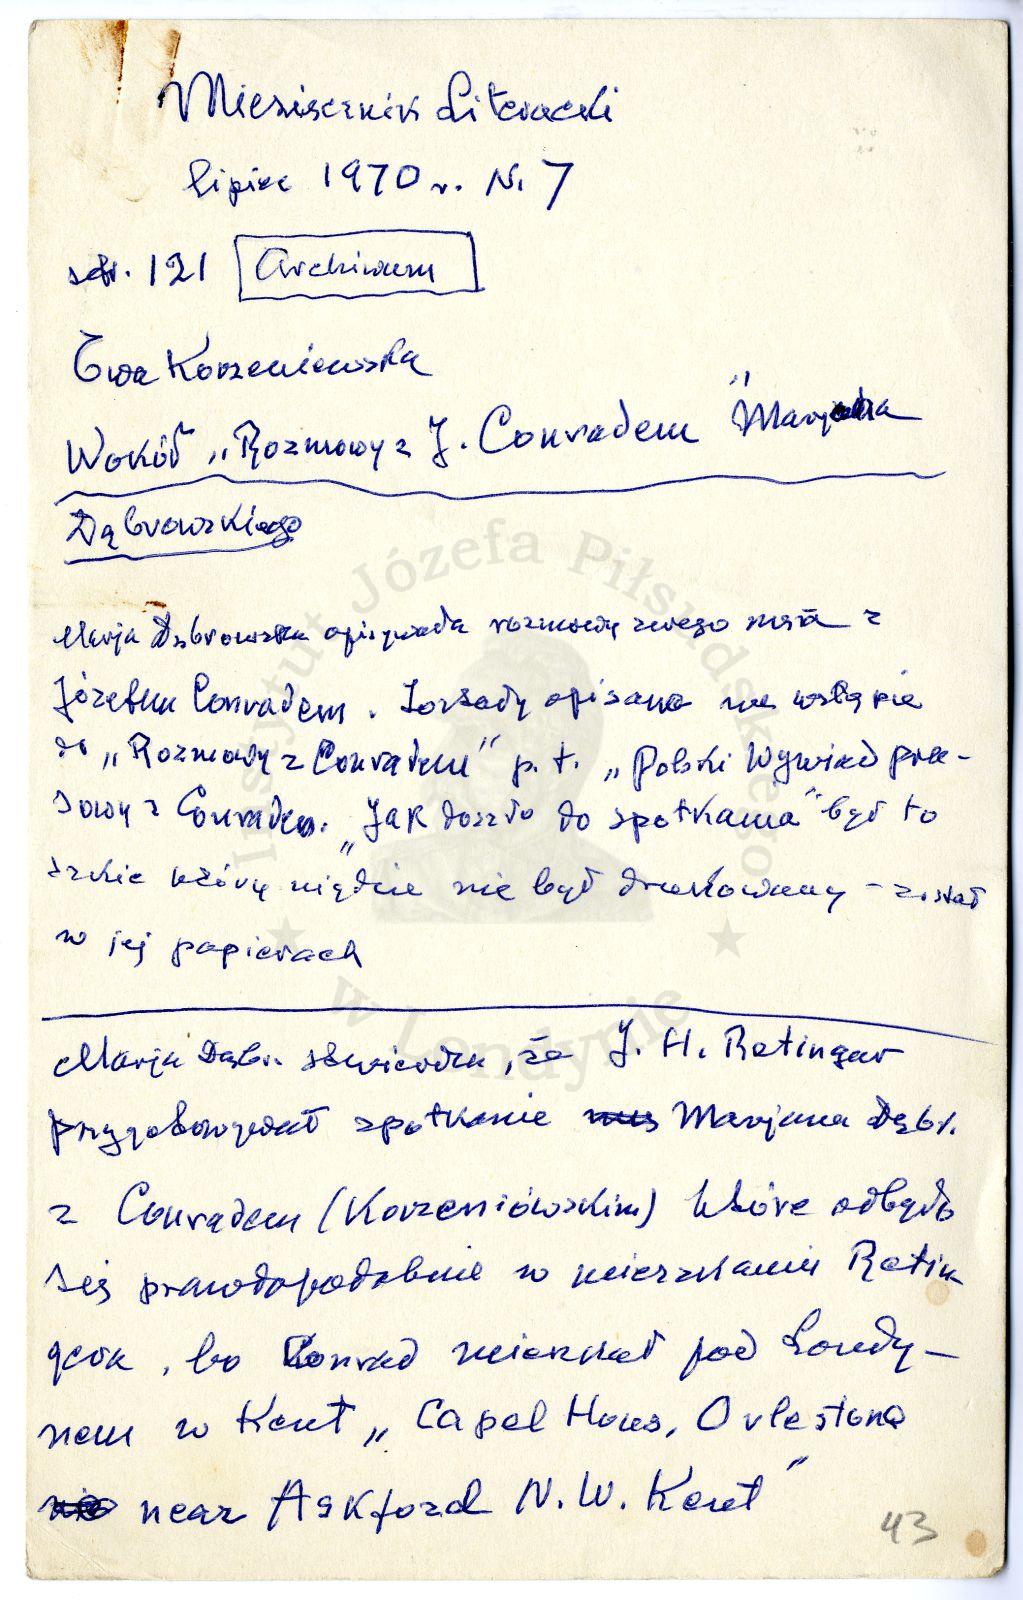 Miesięcznik Literacki
lipiec 1970 r. N. 7
str. 121 Archiwum
Ewa Korzeniewska
Wokół „Rozmowy z J. Conradem" Marjana
Dąbrowskiego
Marja Dąbrowska opisywała rozmowy swego męża z
Józefem Conradem. Zostały opisane we wstępie
do „Rozmowy z Conradem" p. t. „Polski Wywiad pra-
sowy z Conradem. „Jak doszło do spotkania" był to
szkic który nigdzie nie był drukowany – został
w jej papierach
Marja Dąbr. stwierdza, że J. H. Retinger
przygotowywał spotkanie Marjana Dąbr.
z Conradem (Korzeniówskim) które odbyło
się prawdopodobnie w mieszkaniu Retin-
gera, bo Conrad mieszkał pod Londy-
nem w Kent „Capel Hous, Orlestone
near Askford N. W. Kent"
43
Instytut Józefa Piłsudskiego
w Londynie